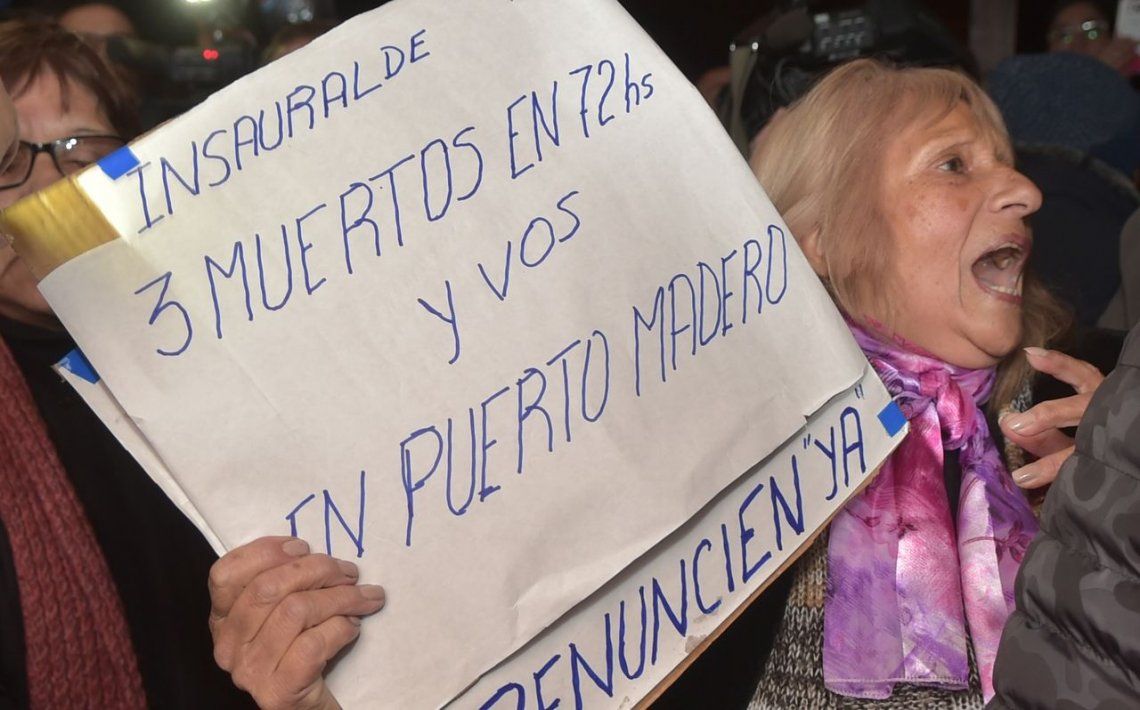 INSAURALDE
3 MUERTOS EN 72hs
y VOS
EN PUERTO MADERO
RENUNCIEN "YA"